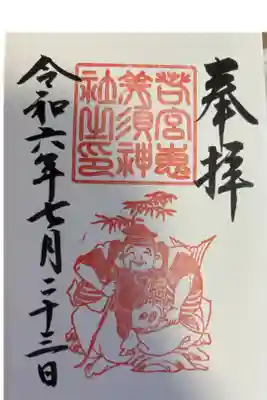 奉拝
若宮惠
美須神
社之印
令和六年七月二十三日